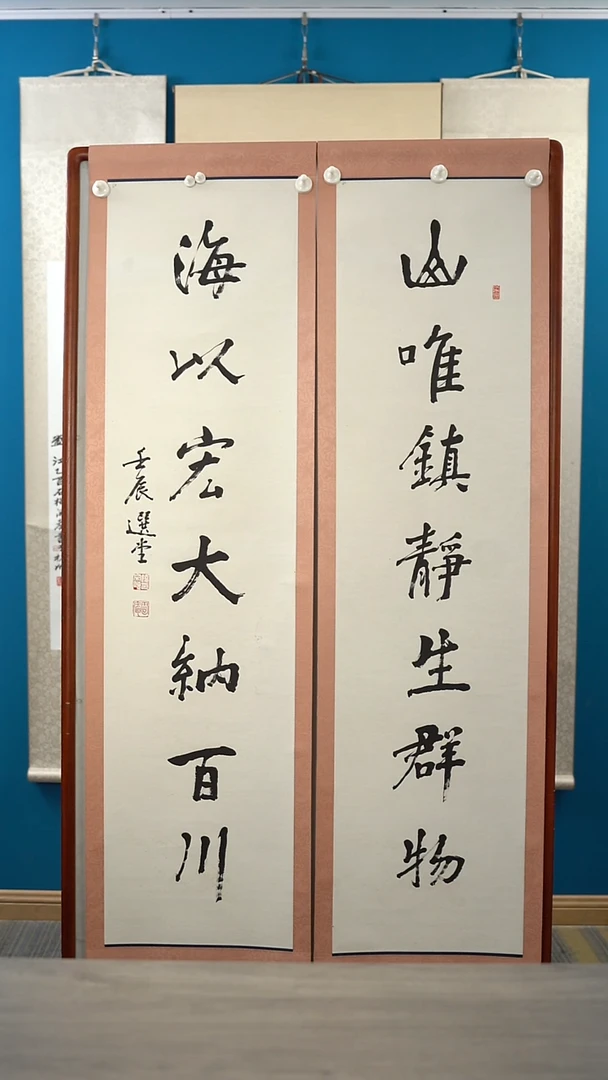 山唯鎮靜生群物
海以宏大納百川
壬辰選堂